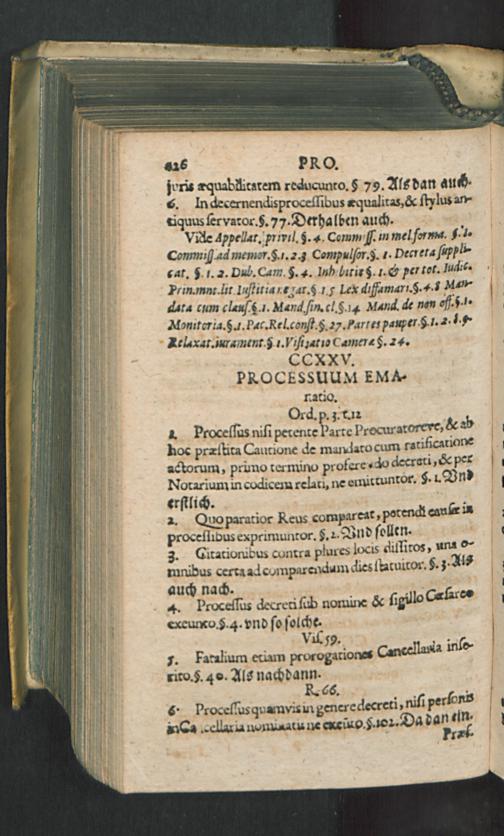 426 PRO.
juris æquabilitatem reducunto. § 79. Als dan auch.
6. In decernendis processibus æqualitas, & stylus an-
tiquus servator. §. 77. Derhalben auch.
Vide Appellat. privil. §. 4. Commiss. in mel forma. §. 1.
Commiss. ad memor. §. 1. 2. 3 Compulsor. §. 1. Decreta suppli-
cat. §. 1. 2. Dub. Cam. §. 4. Inhibitis §. 1. & per tot. Iudic.
Prin. mnt. lit. Iustitia negat. §. 1. 5 Lex diffamari. §. 4. 8 Man-
data cum claus. §. 1. Mand. sin. cl. §. 14 Mand. de non off. §. 1.
Monitoria. §. 1. Pac. Rel. const. §. 27. Partes pauper. §. 1. 2. 8. 9.
Relaxat. iurament. §. 1. Visitatio Cameræ §. 24.
CCXXV.
PROCESSUUM EMA-
ratio.
Ord. p. 3. t. 12
1. Processus nisi petente Parte Procuratoreve, & ab
hoc præstita Cautione de mandato cum ratificatione
actorum, primo termino proferendo decreti, & per
Notarium in codicem relati, ne emittuntor. §. 1. Vnd
erstlich.
2. Quo paratior Reus compareat, petendi causæ in
processibus exprimuntor. §. 2. Vnd sollen.
3. Citationibus contra plures locis dissitos, una o-
mnibus certa ad comparendum dies statuitor. §. 3. Als
auch nach.
4. Processus decreti sub nomine & sigillo Cæsareo
exeunto. §. 4. vnd so solche.
Vis. 59.
5. Fatalium etiam prorogationes Cancellaria inse-
rito. §. 40. Als nach dann.
R. 66.
6. Processus quamvis in genere decreti, nisi personis
in Cancellaria nominatis ne exeūto. §. 102. Da dan ein.
Præs.